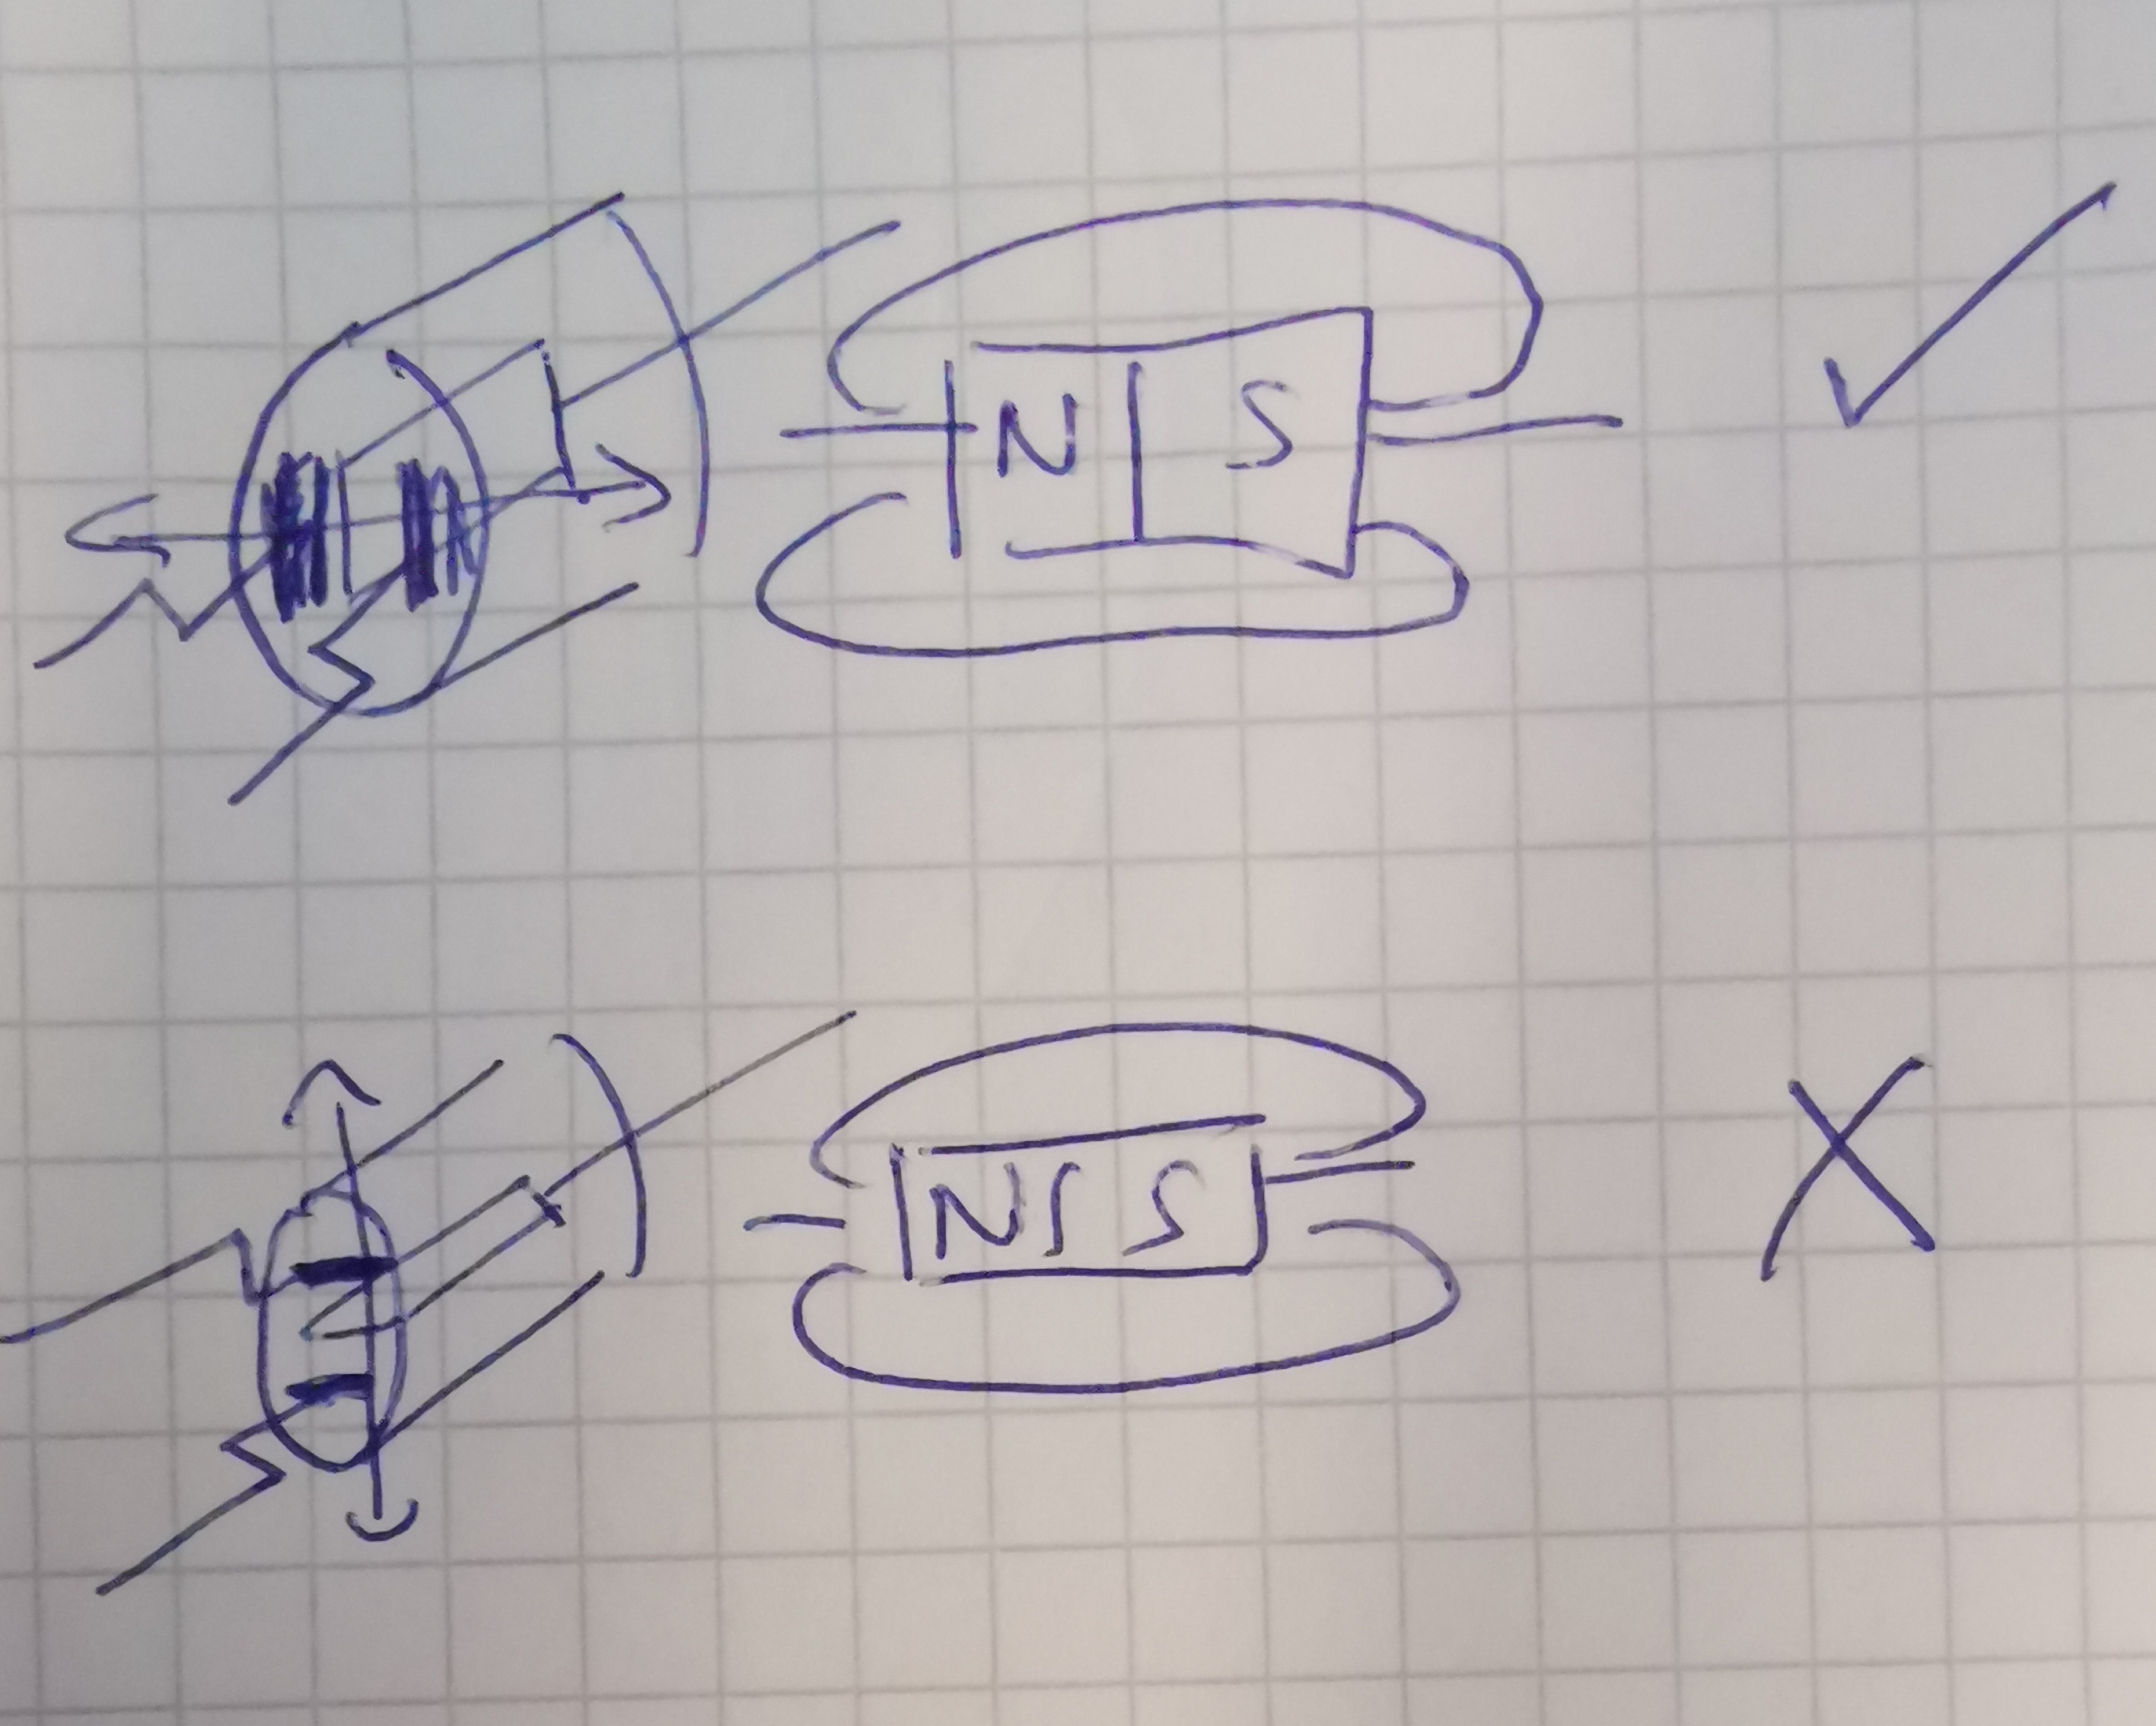 N S
N S